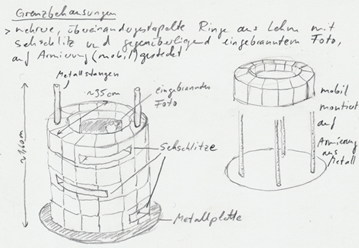 Grenzbehausungen
> mehrere, übereinandergestapelte Ringe aus Lehm mit
Sehschlitz und gegenüberliegend eingebranntem Foto,
auf Armierung (mobil) gesteckt
Metallstangen
~35cm
eingebranntes
Foto
Sehschlitze
Metallplatte
mobil
montiert
auf
Armierung
aus
Metall